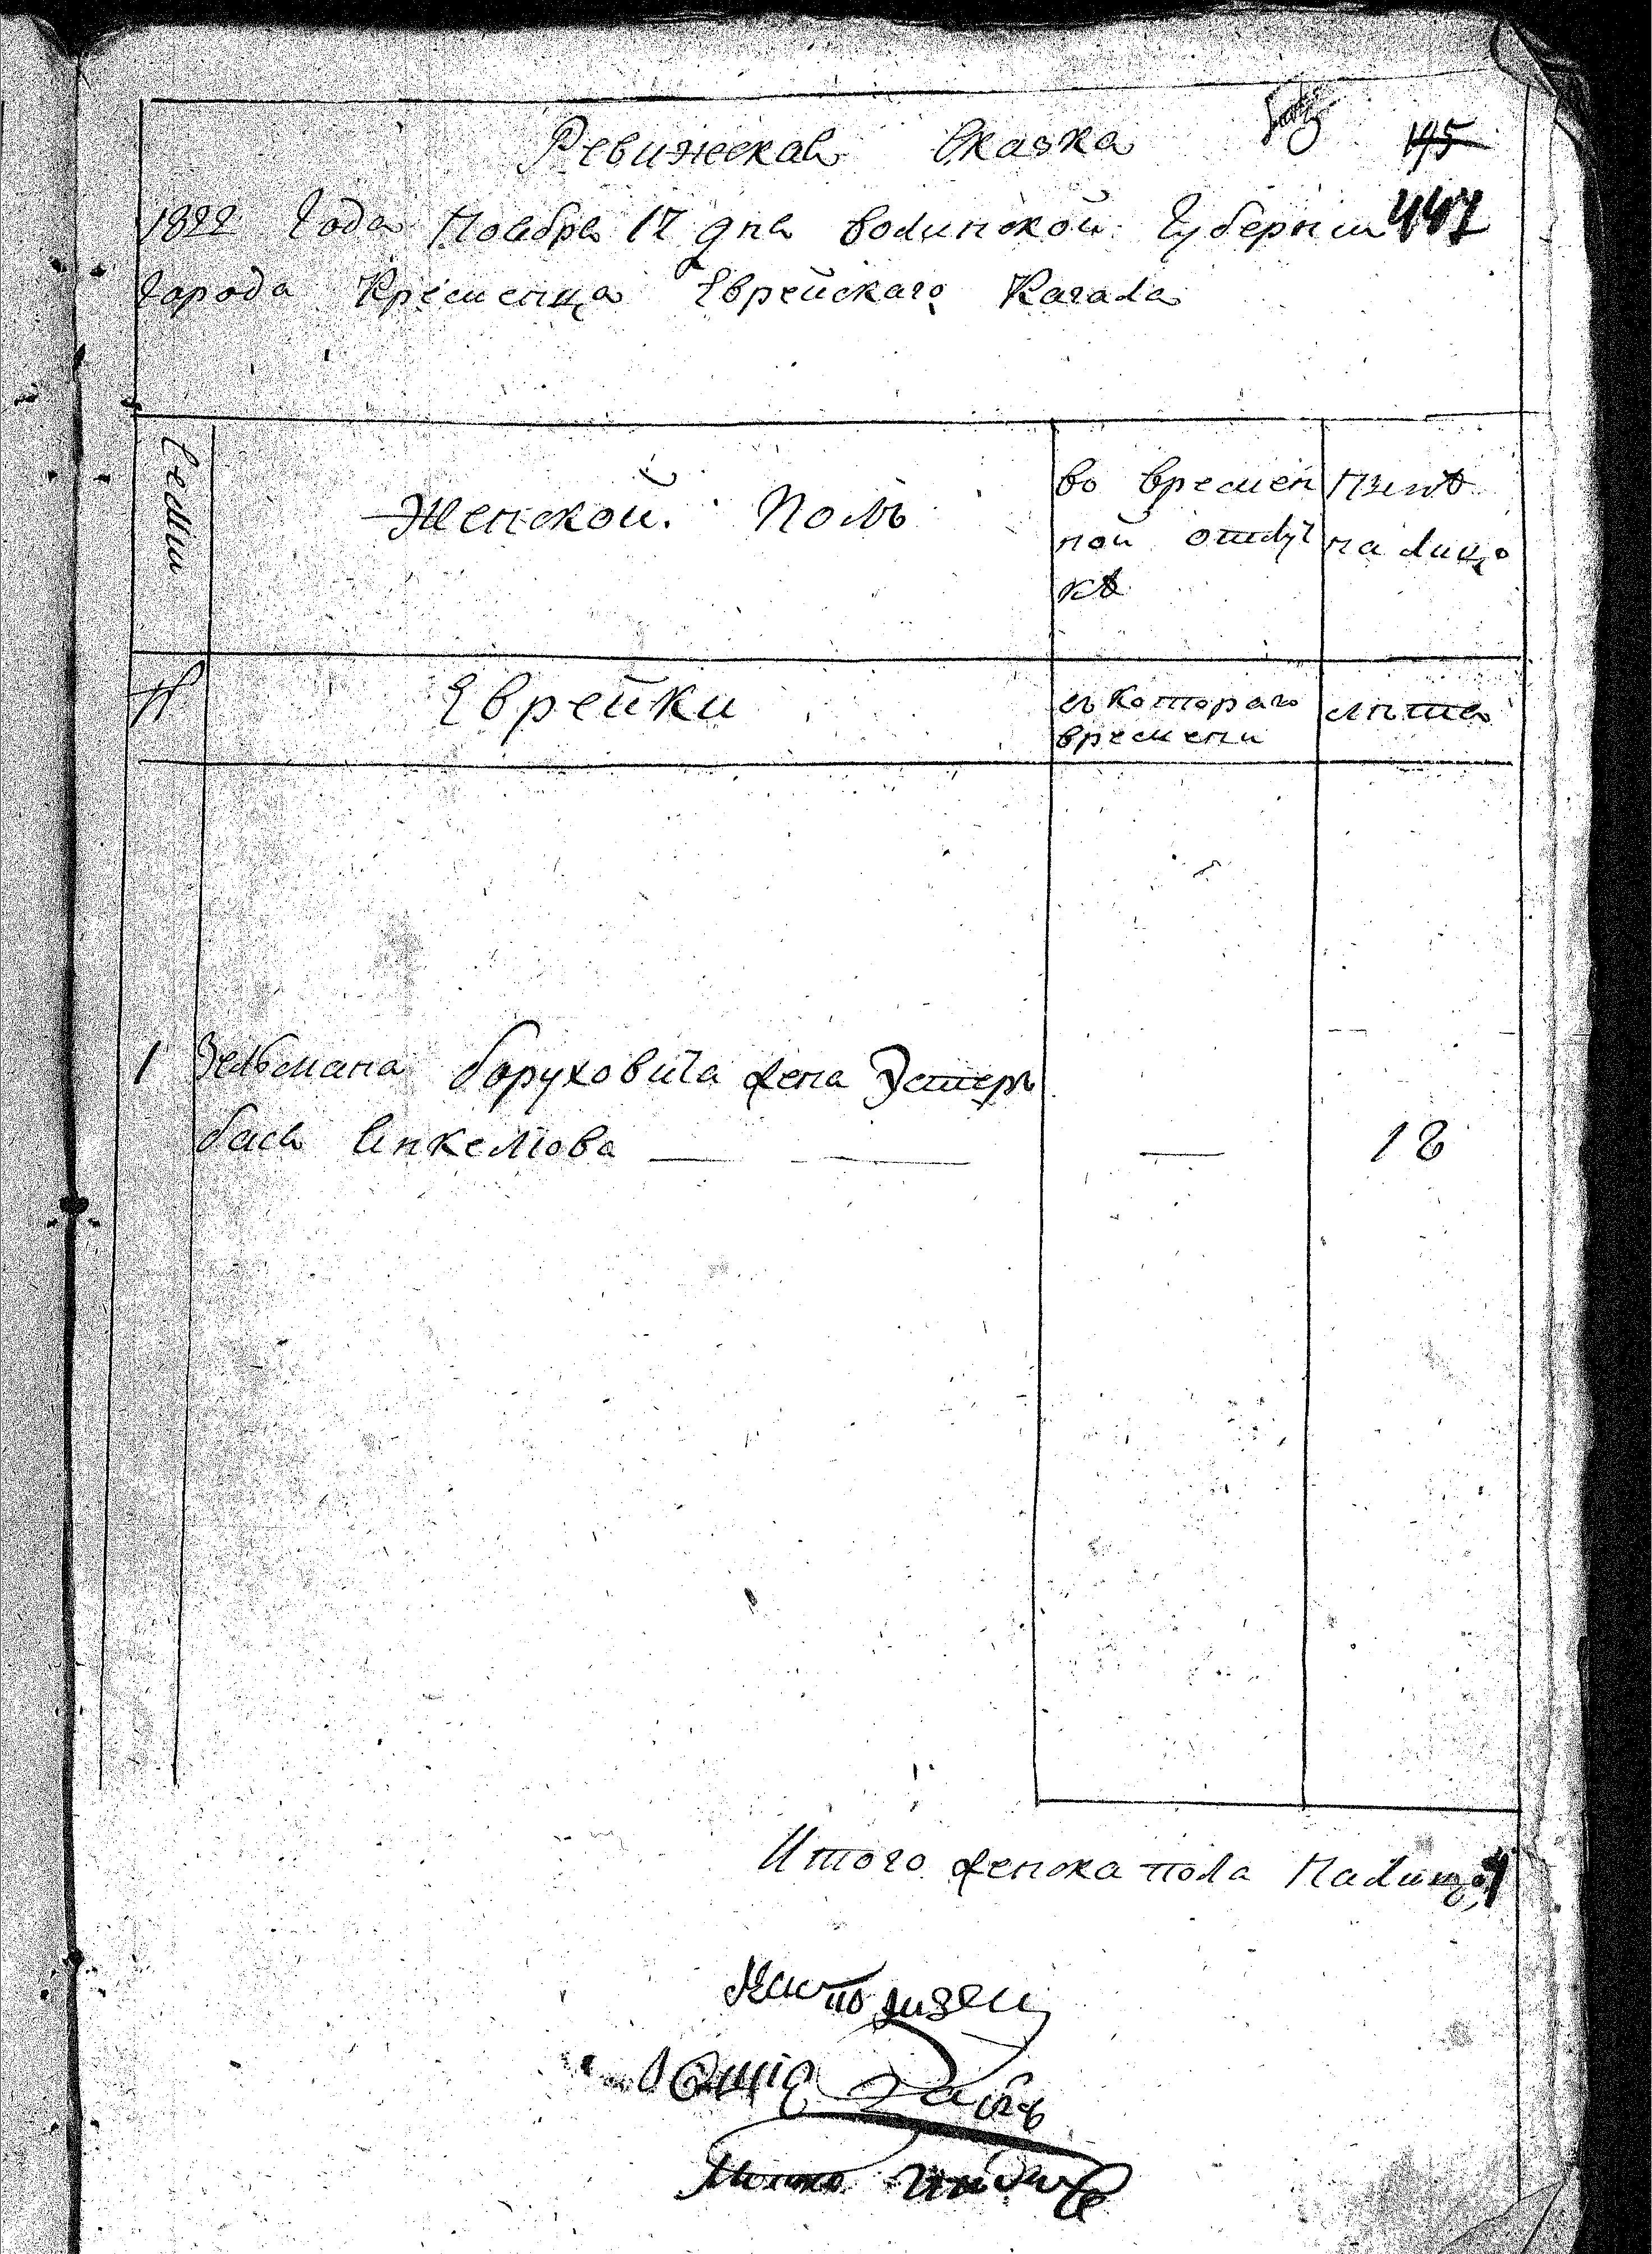 Ревижская Сказка
195
1822 Года Ноября 17 дня волинской Губернии 447
города Кременца Еврейскаго Кагала
Семьи
Женской Полъ
во времен
ной отлуч
кѣ
Нынѣ
на лицо
№
Еврейки
съ котораго
времени
лѣта
1 Зельмана Боруховича жена Эстеръ
бася Янкелiова — — — 18
Итого женска пола Налицо 1